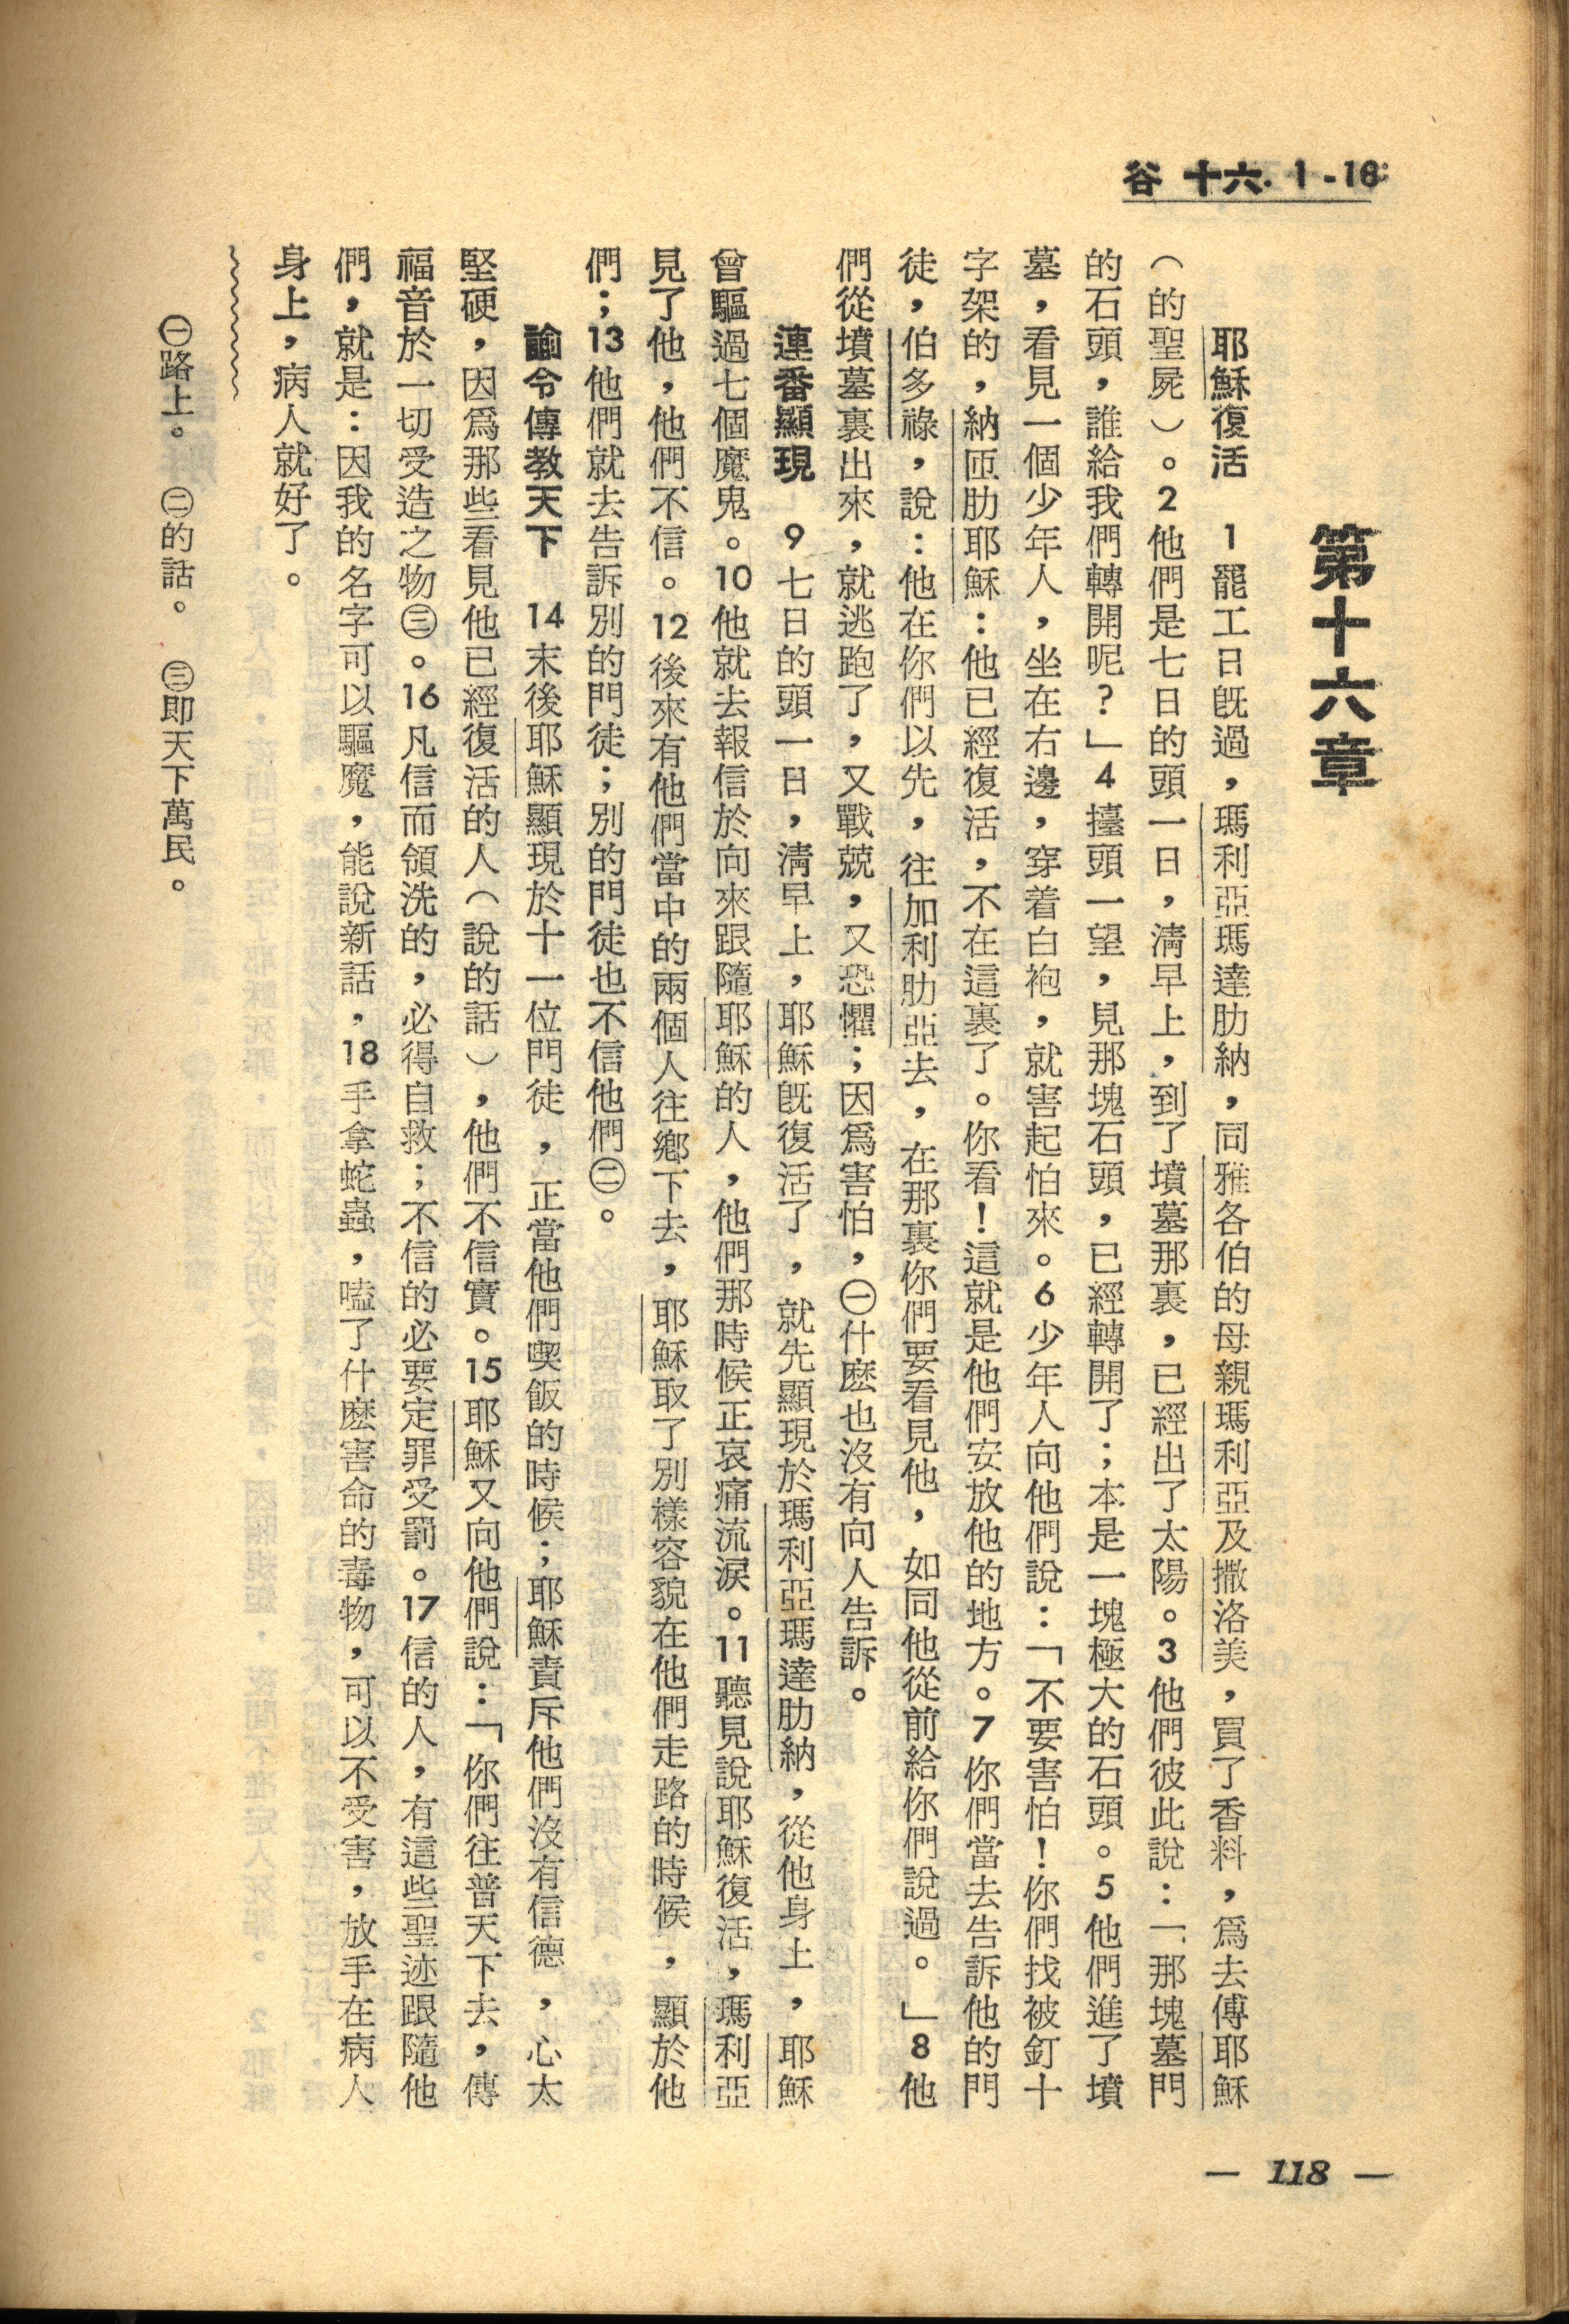 谷 十六. 1-18
第十六章
耶穌復活　1罷工日旣過，瑪利亞瑪達肋納，同雅各伯的母親瑪利亞及撒洛美，買了香料，爲去傅耶穌
（的聖屍）。2他們是七日的頭一日，淸早上，到了墳墓那裏，已經出了太陽。3他們彼此說：「那塊墓門
的石頭，誰給我們轉開呢？」4擡頭一望，見那塊石頭，已經轉開了；本是一塊極大的石頭。5他們進了墳
墓，看見一個少年人，坐在右邊，穿着白袍，就害起怕來。6少年人向他們說：「不要害怕！你們找被釘十
字架的，納匝肋耶穌：他已經復活，不在這裏了。你看！這就是他們安放他的地方。7你們當去告訴他的門
徒，伯多祿，說：他在你們以先，往加利肋亞去，在那裏你們要看見他，如同他從前給你們說過。」8他
們從墳墓裏出來，就逃跑了，又戰兢，又恐懼；因爲害怕，㊀什麽也沒有向人告訴。
連番顯現　9七日的頭一日，淸早上，耶穌旣復活了，就先顯現於瑪利亞瑪達肋納，從他身上，耶穌
曾驅過七個魔鬼。10他就去報信於向來跟隨耶穌的人，他們那時候正哀痛流淚。11聽見說耶穌復活，瑪利亞
見了他，他們不信。12後來有他們當中的兩個人往鄕下去，耶穌取了別樣容貌在他們走路的時候，顯於他
們；13他們就去告訴別的門徒；別的門徒也不信他們㊁。
諭令傳教天下　14末後耶穌顯現於十一位門徒，正當他們喫飯的時候；耶穌責斥他們沒有信德，心太
堅硬，因爲那些看見他已經復活的人（說的話），他們不信實。15耶穌又向他們說：「你們往普天下去，傳
福音於一切受造之物㊂。16凡信而領洗的，必得自救；不信的必要定罪受罰。17信的人，有這些聖迹跟隨他
們，就是：因我的名字可以驅魔，能說新話，18手拿蛇蟲，嗑了什麽害命的毒物，可以不受害，放手在病人
身上，病人就好了。
㊀路上。　㊁的話。　㊂即天下萬民。
— 118 —